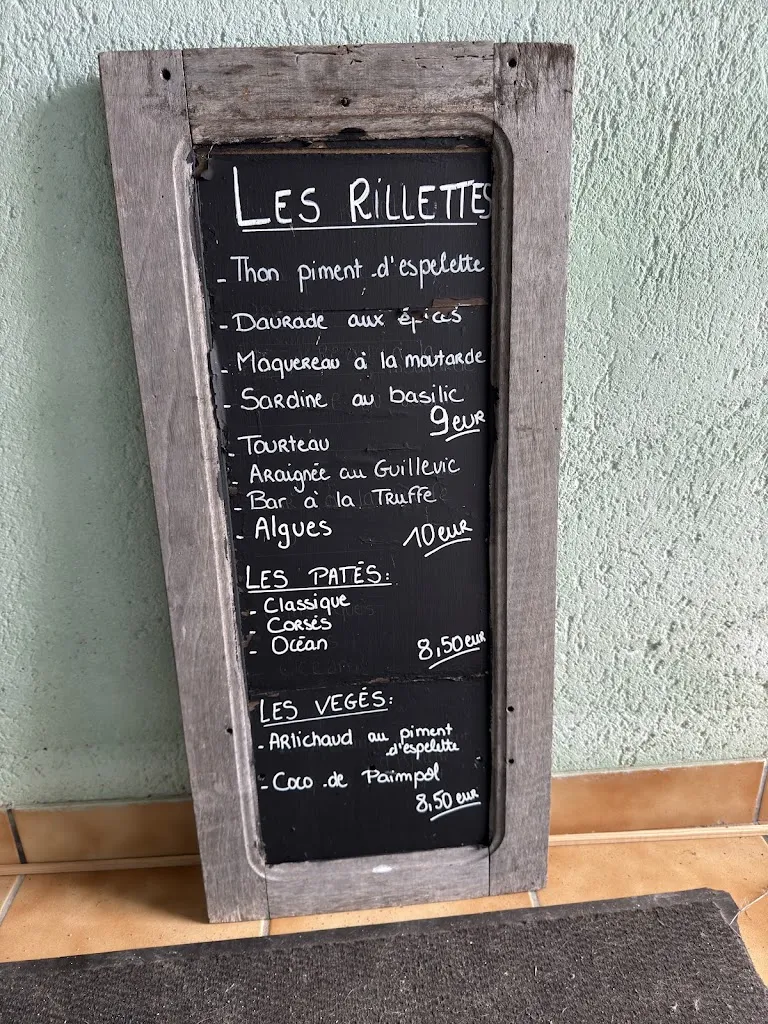 LES RILLETTES
- Thon piment d'espelette
- Daurade aux épices
- Maquereau à la moutarde
- Sardine au basilic
9 eur
- Tourteau
- Araignée au Guillevic
- Bar à la Truffe
- Algues
10 eur
LES PATÉS:
- Classique
- Corsés
- Océan
8,50 eur
LES VEGÉS:
- ARtichaud au piment
d'espelette
- Coco de Paimpol
8,50 eur